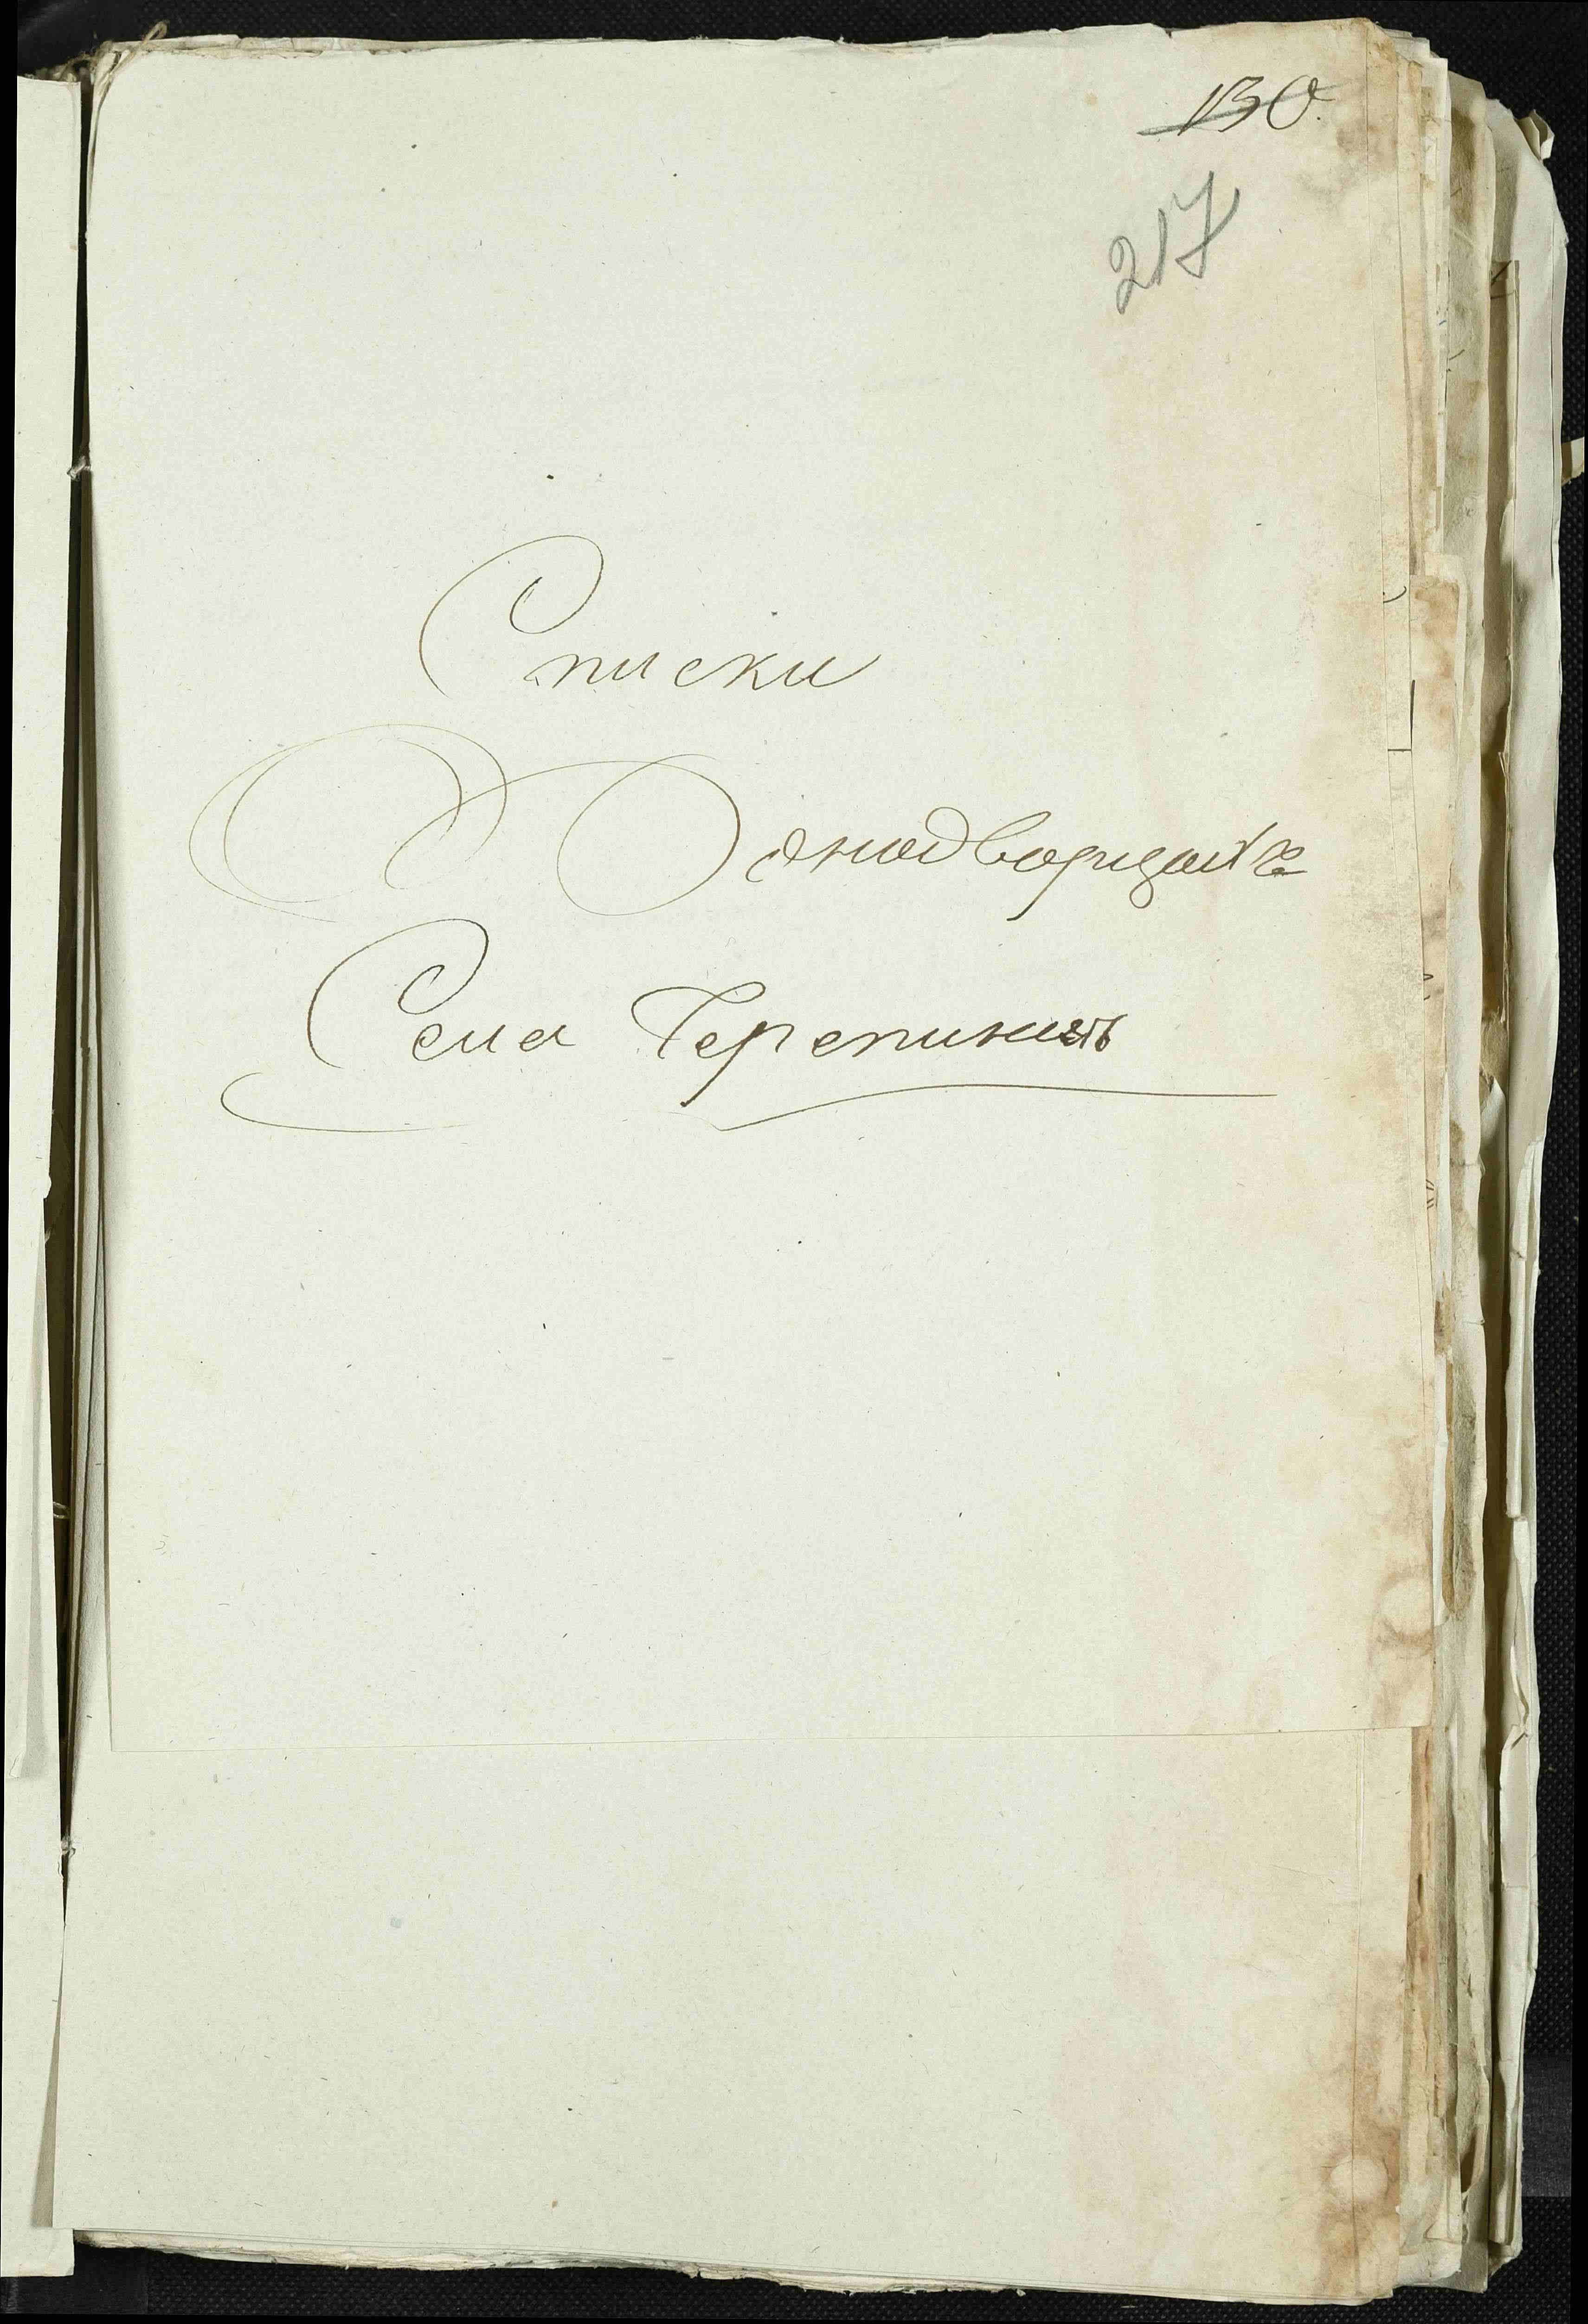 130.
217
Списки
О Однодворцахъ
Села Черепинъ